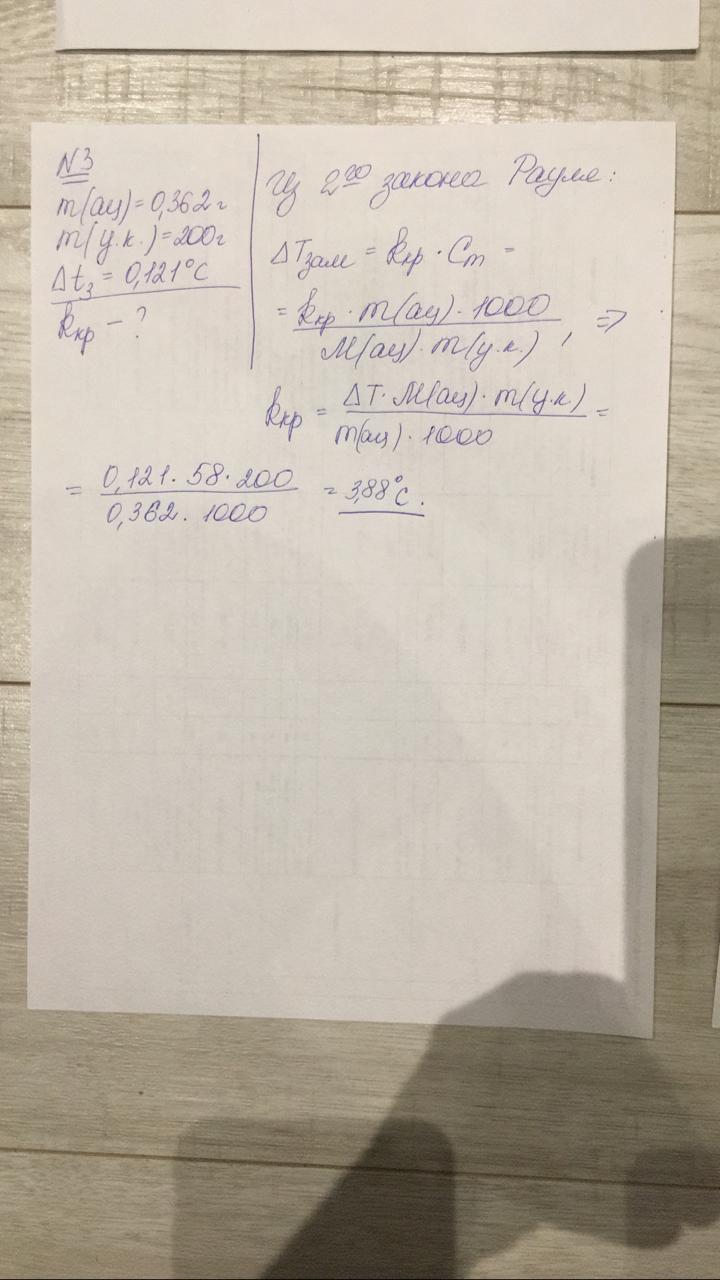 N3
m(ац) = 0,362 г
m(у.к.) = 200 г
Δt₃ = 0,121°C
kкр – ?
Из 2го закона Рауля:
ΔTзам = kкр · Cm =
= kкр · m(ац) · 1000 / M(ац) · m(у.к.) , =>
kкр = ΔT · M(ац) · m(у.к) / m(ац) · 1000 =
= 0,121 · 58 · 200 / 0,362 · 1000 = 3,88°C.